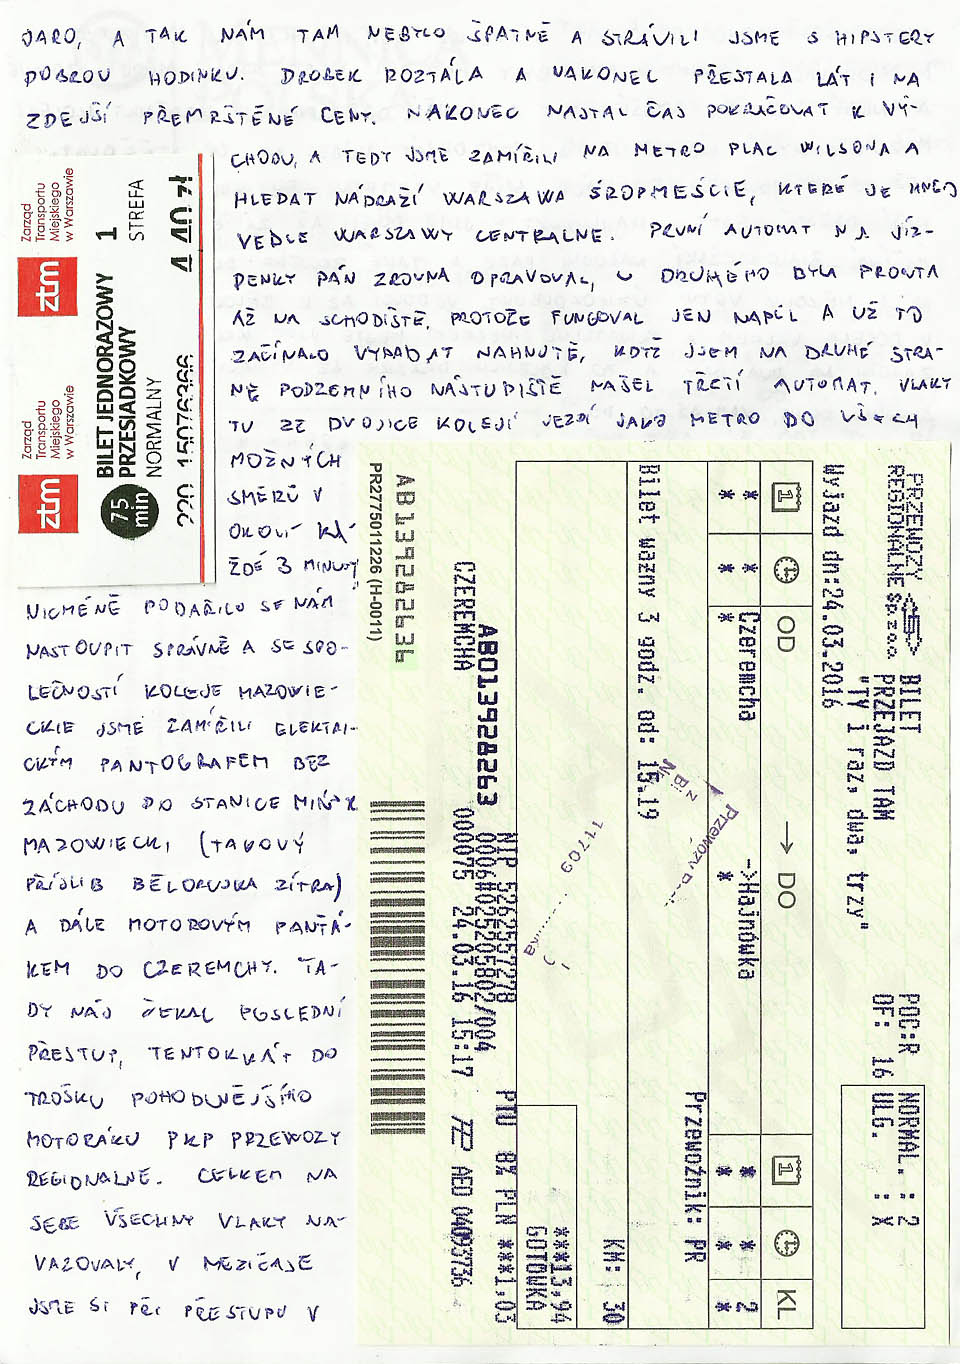 JARO, A TAK NÁM TAM NEBYLO ŠPATNĚ A STRÁVILI JSME S HIPSTERY
DOBROU HODINKU. DROBEK ROZTÁLA A NAKONEC PŘESTALA LÁT I NA
ZDEJŠÍ PŘEMRŠTĚNÉ CENY. NAKONEC NASTAL ČAS POKRAČOVAT K VÝ-
CHODU, A TEDY JSME ZAMÍŘILI NA METRO PLAC WILSONA A
HLEDAT NÁDRAŽÍ WARSZAWA ŚROPMEŚCIE, KTERÉ JE HNED
VEDLE WARSZAWY CENTRALNE. PRVNÍ AUTOMAT NA JÍZ-
DENKY PÁN ZROVNA OPRAVOVAL, U DRUHÉHO BYLA FRONTA
AŽ NA SCHODIŠTĚ, PROTOŽE FUNGOVAL JEN NAPŮL A UŽ TO
ZAČÍNALO VYPADAT NAHNUTĚ, KDYŽ JSEM NA DRUHÉ STRA-
NĚ PODZEMNÍHO NÁSTUPIŠTĚ NAŠEL TŘETÍ AUTOMAT. VLAKY
TU ZE DVOJICE KOLEJÍ JEZDÍ JAKO METRO DO VŠECH
MOŽNÝCH
SMĚRŮ V
OKOLÍ KA-
ŽDÉ 3 MINUTY
NICMÉNĚ PODAŘILO SE NÁM
NASTOUPIT SPRÁVNĚ A SE SPO-
LEČNOSTÍ KOLEJE MAZOWIE-
CKIE JSME ZAMÍŘILI ELEKTRI-
CKÝM PANTOGRAFEM BEZ
ZÁCHODU DO STANICE MIŃSK
MAZOWIECKI (TAKOVÝ
PŘÍSLIB BĚLORUSKA ZÍTRA)
A DÁLE MOTOROVÝM PANTÁ-
KEM DO CZEREMCHY. TA-
DY NÁS ČEKAL POSLEDNÍ
PŘESTUP, TENTOKRÁT DO
TROŠKU POHODLNĚJŠÍHO
MOTORÁKU PKP PRZEWOZY
REGIONALNE. CELKEM NA
SEBE VŠECHNY VLAKY NA-
VAZOVALY, V MEZIČASE
JSME SI PŘI PŘESTUPU V
Zarząd
Transportu
Miejskiego
w Warszawie
ztm
Zarząd
Transportu
Miejskiego
w Warszawie
ztm
BILET JEDNORAZOWY 1
PRZESIADKOWY STREFA
NORMALNY
75
min
4,40 zł
PRZEWOZY
REGIONALNE Sp.z o.o.
BILET
PRZEJAZD TAM
"TY i raz, dwa, trzy"
POC:R
OF: 16
NORMAL. : 2
ULG. : X
Wyjazd dn:24.03.2016
OD → DO KL
* * Czeremcha ->Hajnówka * * 2
* * * * * * *
Bilet ważny 3 godz. od: 15.19
Przewoźnik: PR
KM: 30
***13,94
GOTÓWKA
PTU 8% PLN ***1,03
NIP 5262557278
0006#025205802/004
000075 24.03.16 15:17
AB013928263
CZEREMCHA
AED 04093736
AB13928263G
PR2775011226 (H-0011)
11709